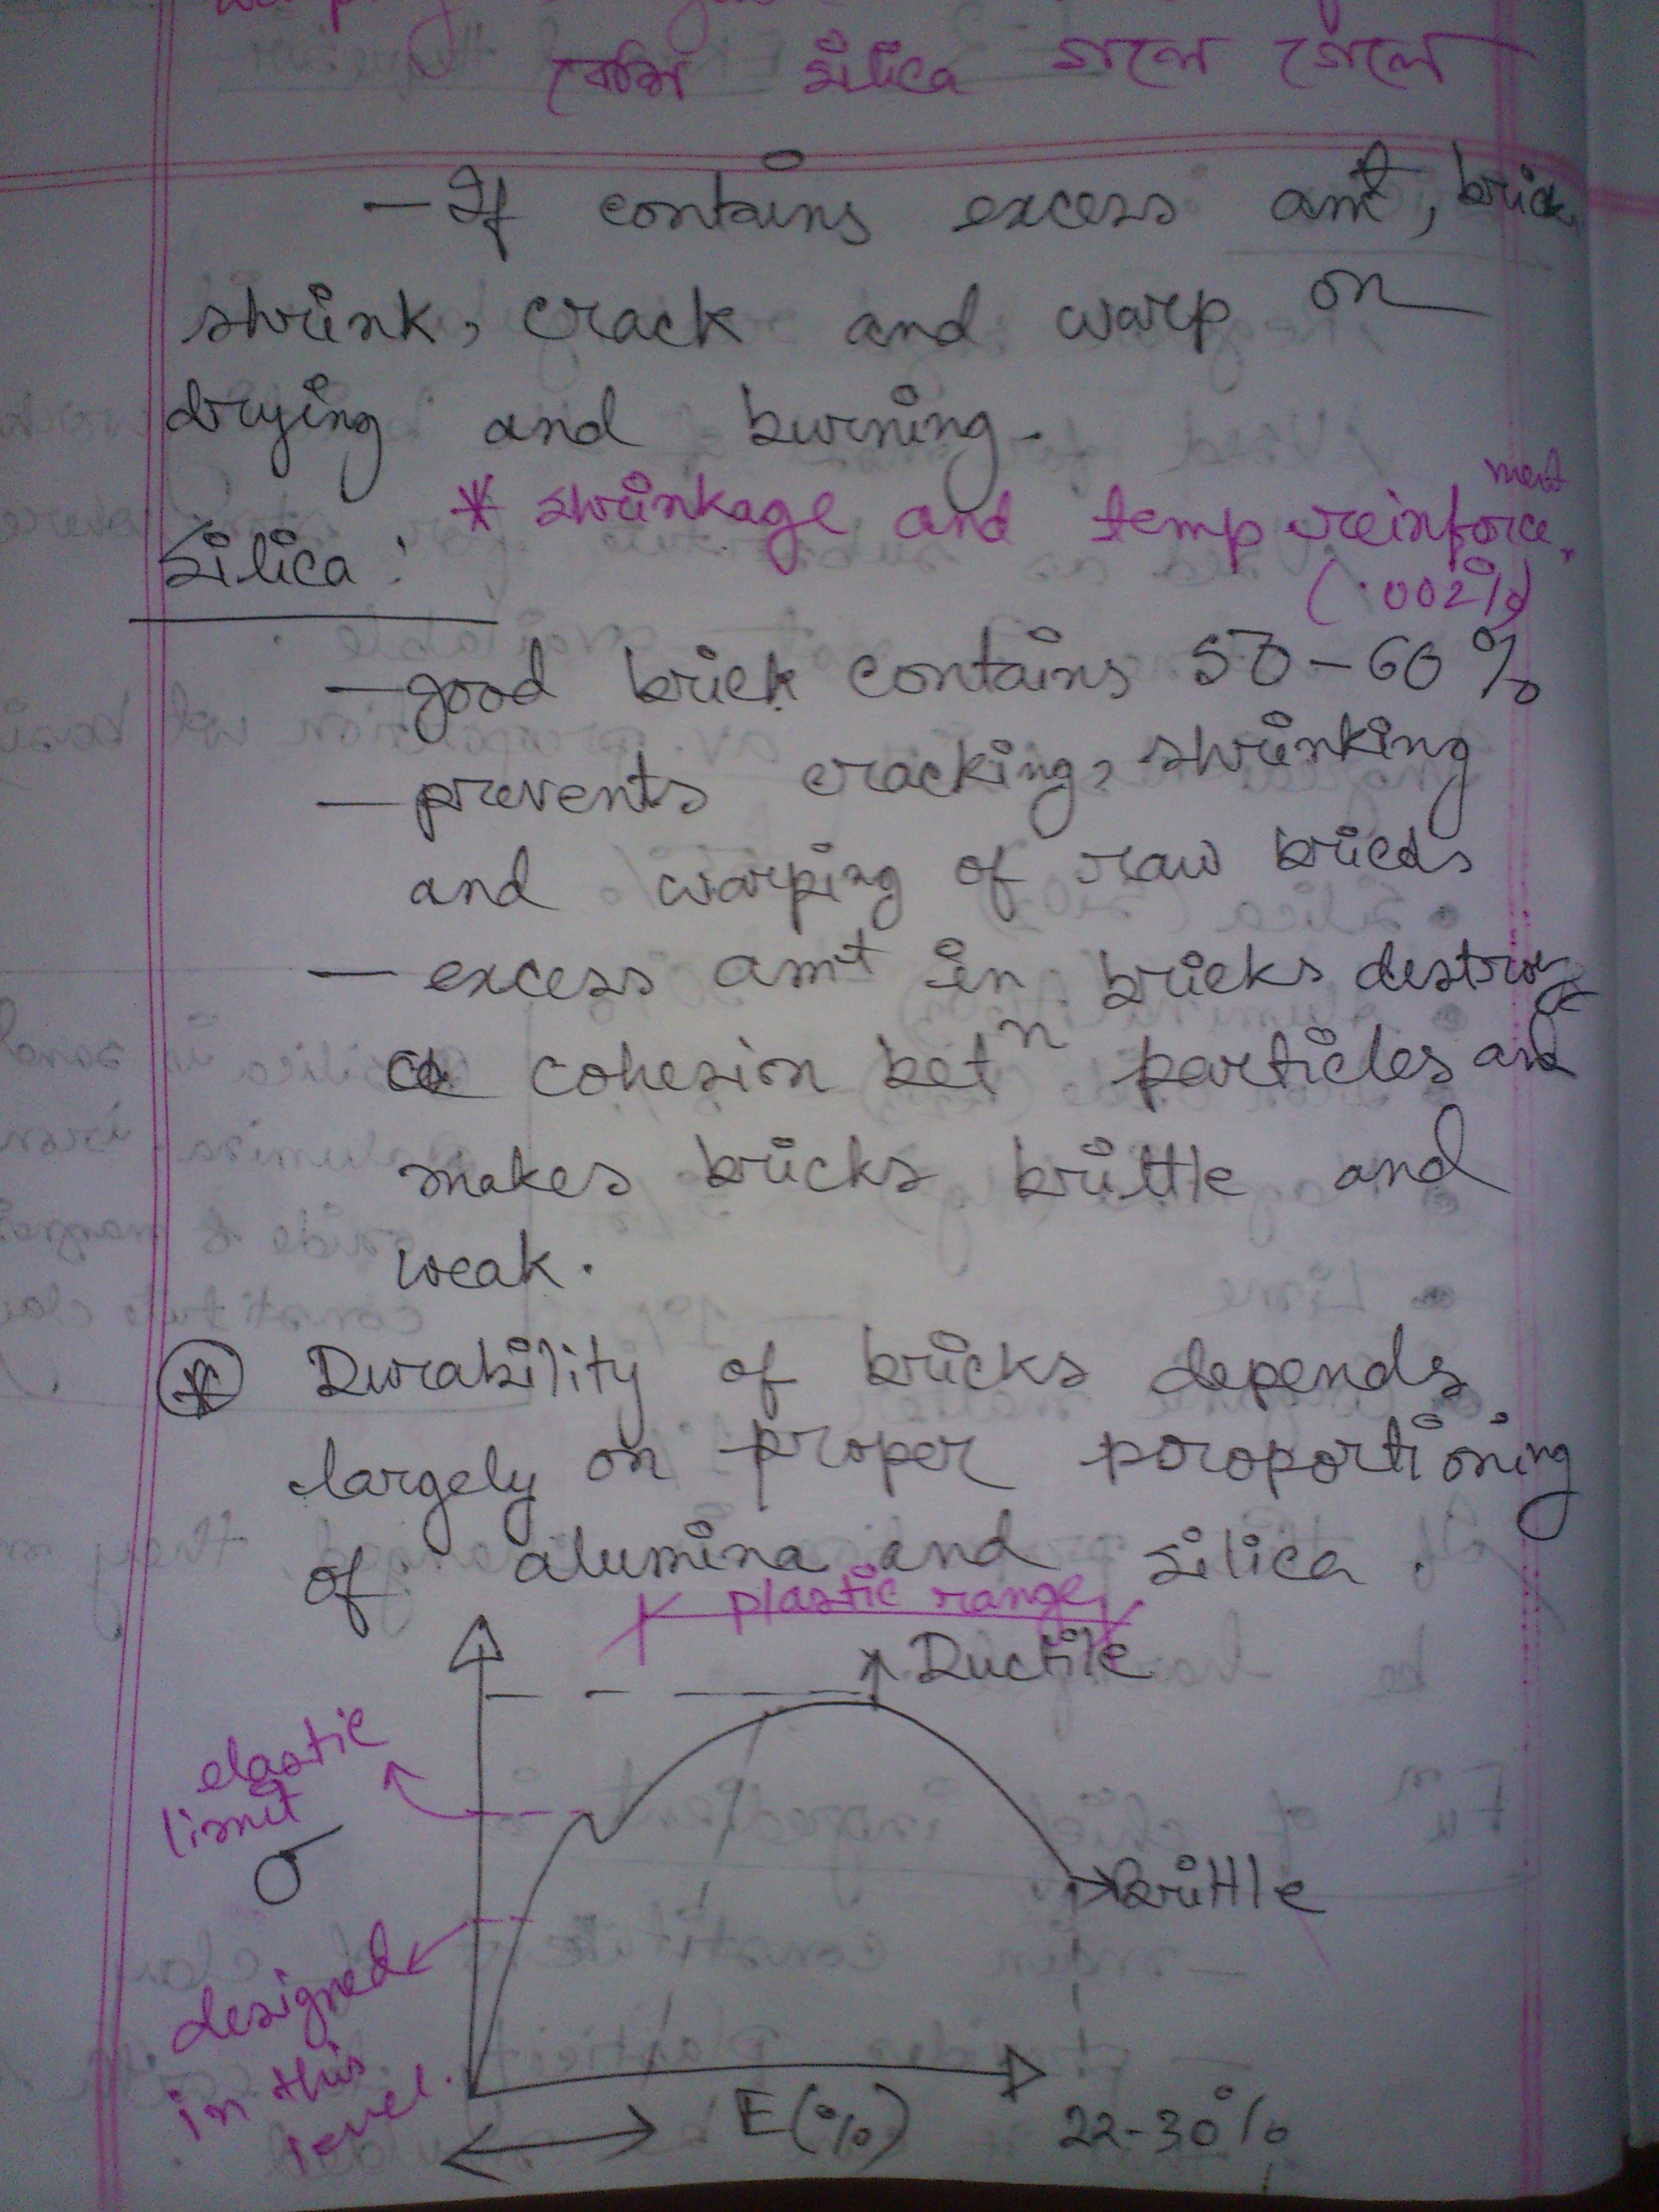 বেশি silica গলে গেলে
— If contains excess amt, brick
shrink, crack and warp on
drying and burning.
* shrinkage and temp reinforcement
(.002%)
Silica :
— good brick contains 50-60%
— prevents cracking, shrinking
and warping of raw bricks
— excess amt in bricks destroy
cohesion betn particles and
makes bricks brittle and
weak.
* Durability of bricks depends
largely on proper proportioning
of alumina and silica.
plastic range
Ductile
elastic
limit
σ
brittle
designed
in this
level.
E(%)
22-30%